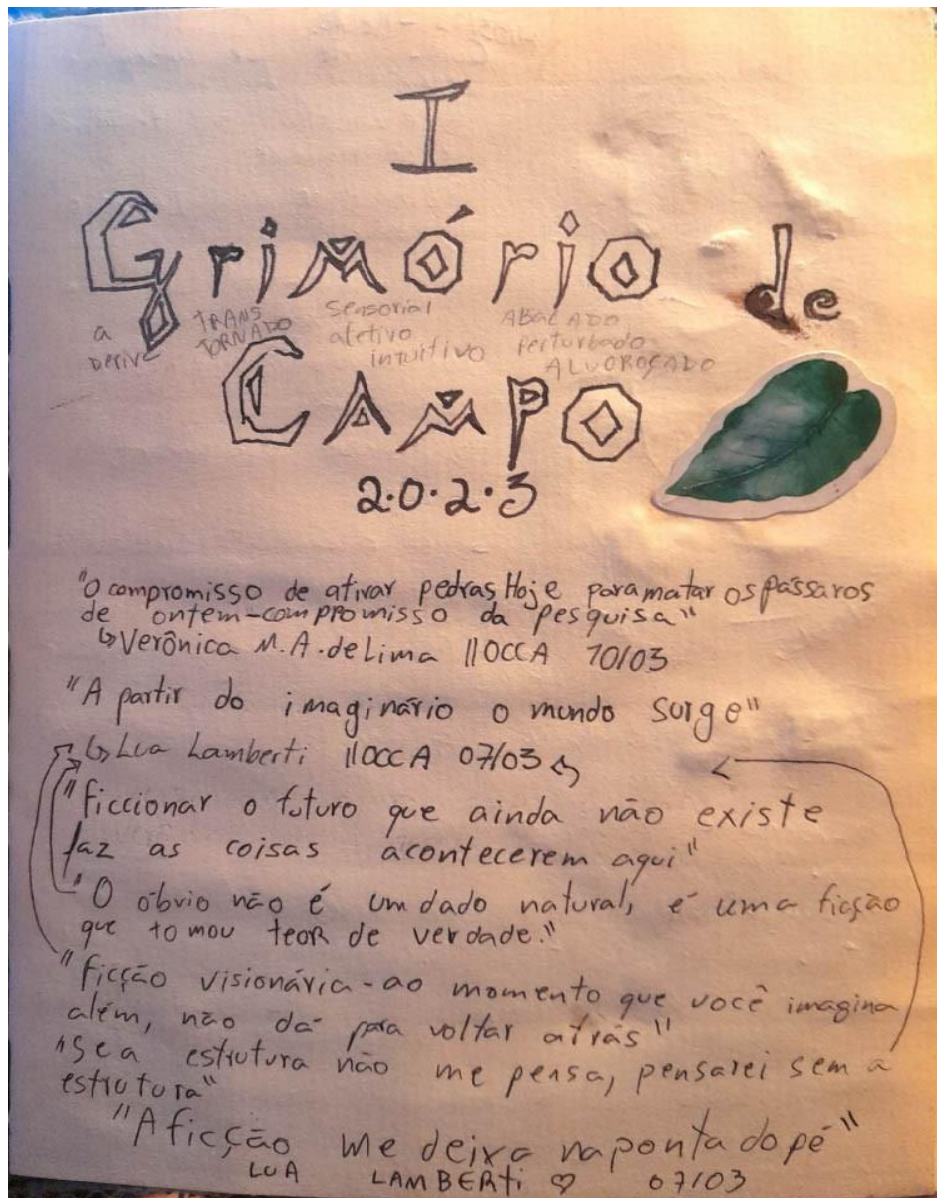 I
Grimório de
a
Derive
TRANS
TORNADO
Sensorial
afetivo
intuitivo
ABALADO
perturbado
ALVOROÇADO
CAMPO
2.0.2.3
"O compromisso de ativar pedras Hoje para matar os pássaros
de ontem-compromisso da pesquisa"
↳Verônica M.A.de Lima IIOCCA 10/03
"A partir do imaginário o mundo surge"
↳Lua Lamberti IIOCCA 07/03
"ficcionar o futuro que ainda não existe
faz as coisas acontecerem aqui"
"O óbvio não é um dado natural, é uma ficção
que tomou teor de verdade."
"ficção visionária-ao momento que você imagina
além, não dá para voltar atrás"
"Se a estrutura não me pensa, pensarei sem a
estrutura"
"A ficção me deixa na ponta do pé"
LUA LAMBERTi ♡ 07/03